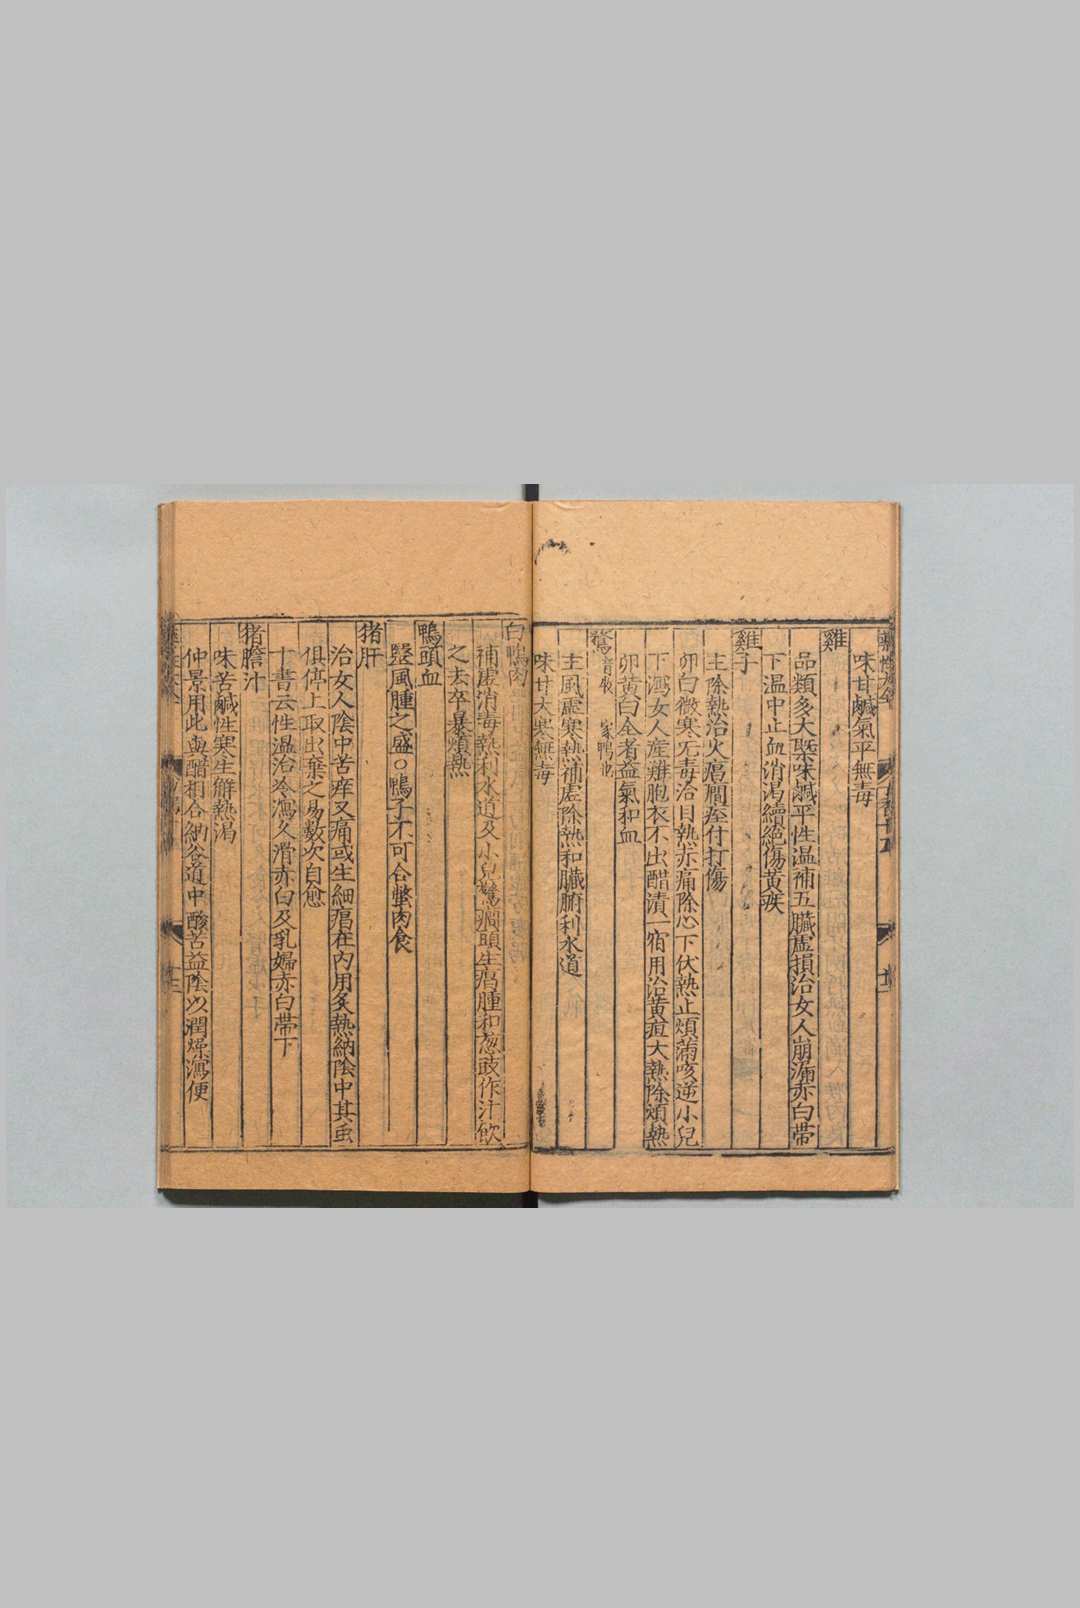 味甘鹹氣平無毒
雞
品類多大槩味鹹平性温補五臟虛損治女人崩漏赤白帶
下温中止血消渴續絕傷黃疾
雞子
主除熱治火瘡癎痓付打傷
卵白微寒无毒治目熱赤痛除心下伏熱止煩滿咳逆小兒
下瀉女人産難胞衣不出醋漬一宿用治黃疸大熱除煩熱
卵黃白全者益氣和血
鶩音木 家鴨也
主風虛寒熱補虛除熱和臟腑利水道
味甘大寒無毒
白鴨肉
補虛消毒熱利水道及小兒驚癎頭生瘡腫和葱豉作汁飲
之去卒暴煩熱
鴨頭血
毉風腫之盛○鴨子不可合鱉肉食
猪肝
治女人陰中苦痒又痛或生細瘡在內用炙熱納陰中其䖝
俱停上取出棄之易數次自愈
十書云性温治冷瀉久滑赤白及乳婦赤白帶下
猪膽汁
味苦鹹性寒生解熱渴
仲景用此與醋相合納谷道中酸苦益陰以潤燥瀉便